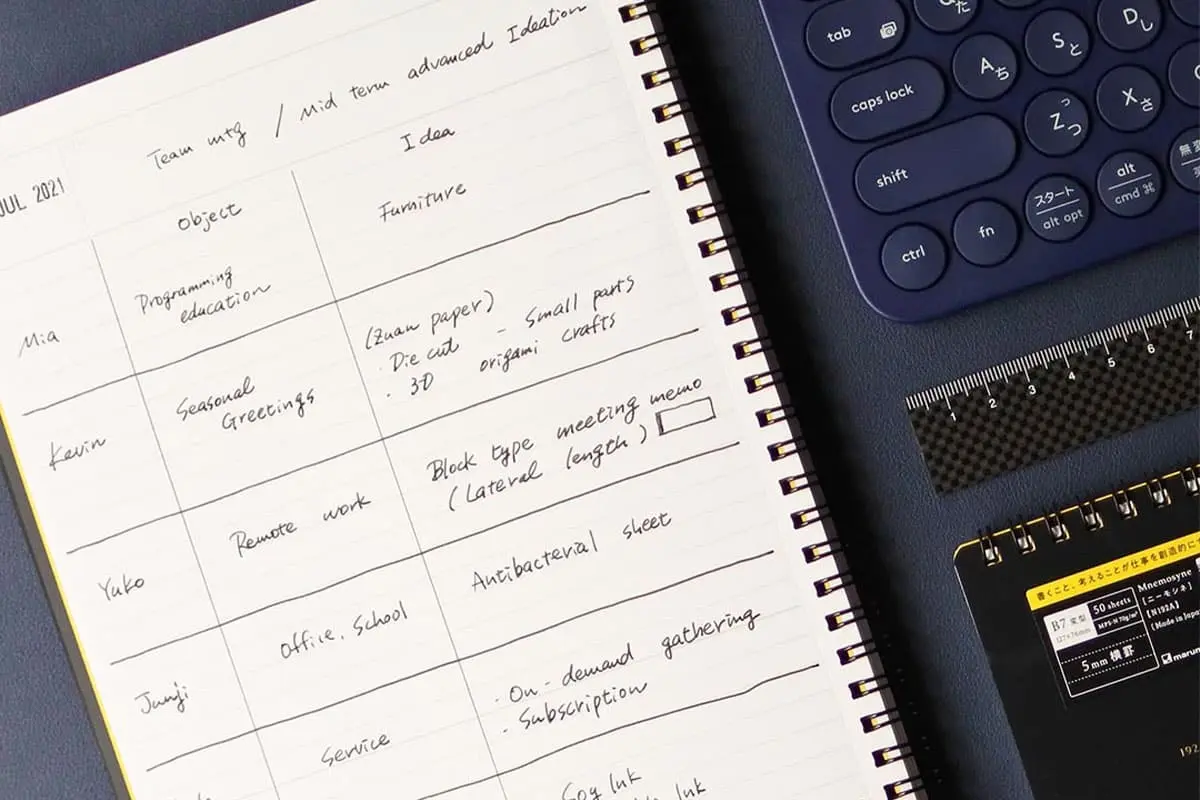 JUL 2021
Team mtg / Mid term advanced Ideation
Object
Idea
Mia
Programming
education
Furniture
Kevin
Seasonal
Greetings
(Zuan paper)
· Die cut - Small parts
· 3D origami crafts
Yuko
Remote work
Block type meeting memo
(Lateral length)
Junji
Office, School
Antibacterial sheet
Service
· On-demand gathering
· Subscription
Soy Ink
Ink
tab
た
caps lock
A ち
S と
D し
shift
Z っ つ
X さ
ctrl
fn
スタート
alt opt
alt
cmd ⌘
無変
1 2 3 4 5 6 7
書くこと、考えることが仕事を創造的に
B7 変型
50 sheets
Mnemosyne
[ニーモシネ]
[N192A]
5mm 横罫
192